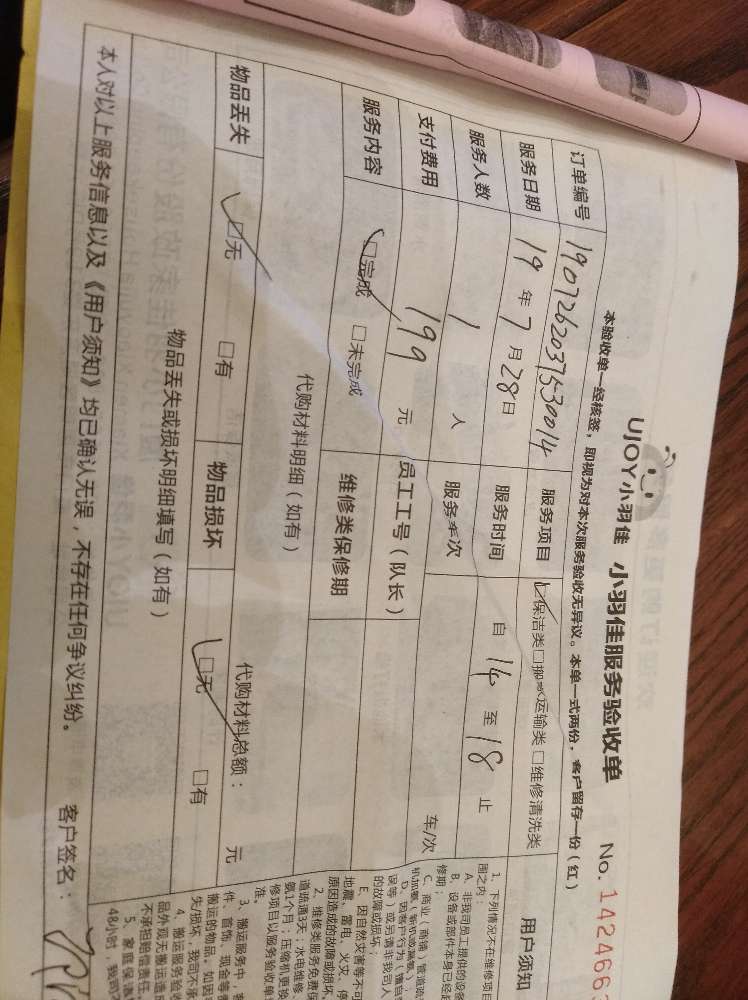 UJOY小羽佳 小羽佳服务验收单 No. 1424667
本验收单一经核签，即视为对本次服务验收无异议。本单一式两份，客户留存一份（红）
订单编号 1907262037530014 服务项目 保洁类 □搬 运输类 □维修清洗类
服务日期 19年7月28日 服务时间 自 14 至 18 止
服务人数 1 人 服务车次 车/次
支付费用 199 元 员工工号（队长）
服务内容 □完成 □未完成 维修类保修期
代购材料明细（如有） 代购材料总额： 元
物品丢失 □无 □有 物品损坏 □无 □有
物品丢失或损坏明细填写（如有）
本人对以上服务信息以及《用户须知》均已确认无误，不存在任何争议纠纷。 客户签名：
用户须知
1. 下列情况不在维修项目
围之内：
A. 非我司员工提供的设备
B. 设备或部件本身已经
修期；
C. 商业（商铺）管道疏
D. 因客户行为
误等）或另请非我司人
的故障或损坏；
E. 因自然灾害等不可
地震、雷电、火灾、停
原因造成的故障或损坏
2. 维修类服务免费保
道疏通3天；水电维修
氨1个月；压缩机更换
修项目以服务验收单
准。
3. 搬运服务中，
件、首饰、现金等
搬运的物品。如因
失/损坏，我司不承
4. 搬运服务验收
品外观无搬运造成
不承担赔偿责任
5. 家庭保洁
48小时，我司